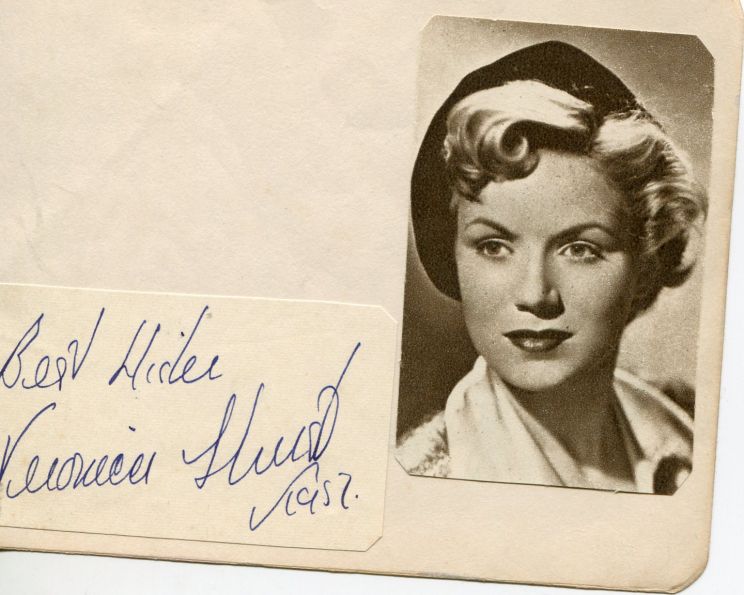 Best Wishes
Veronica Hurst
1957.